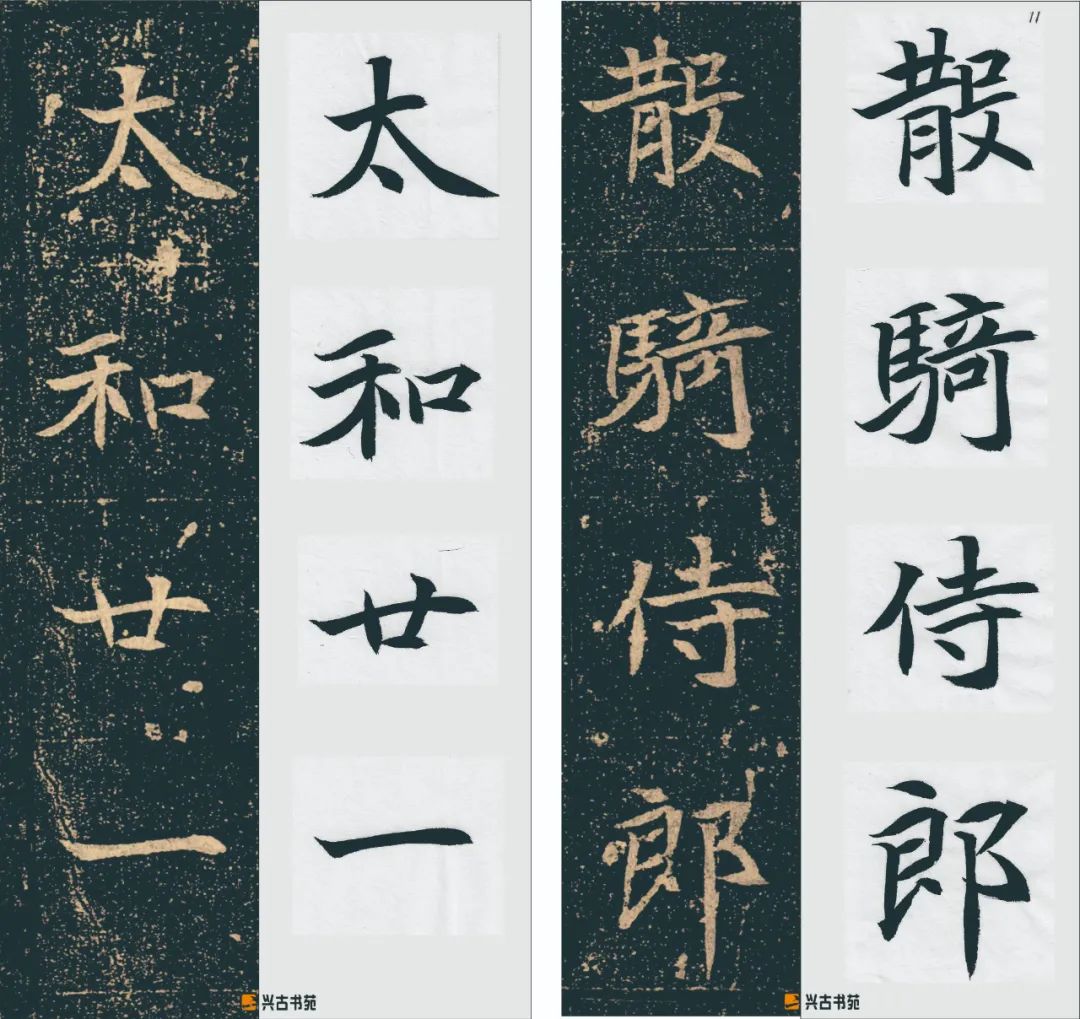 太和廿一
太和廿一
兴古书苑
散騎侍郎
11
散騎侍郎
兴古书苑